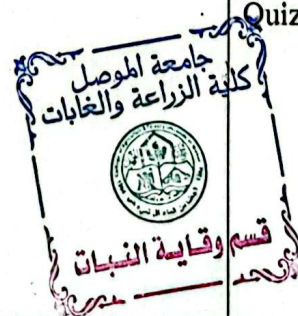 Quiz
جامعة الموصل
كلية الزراعة والغابات
قسم وقاية النبات